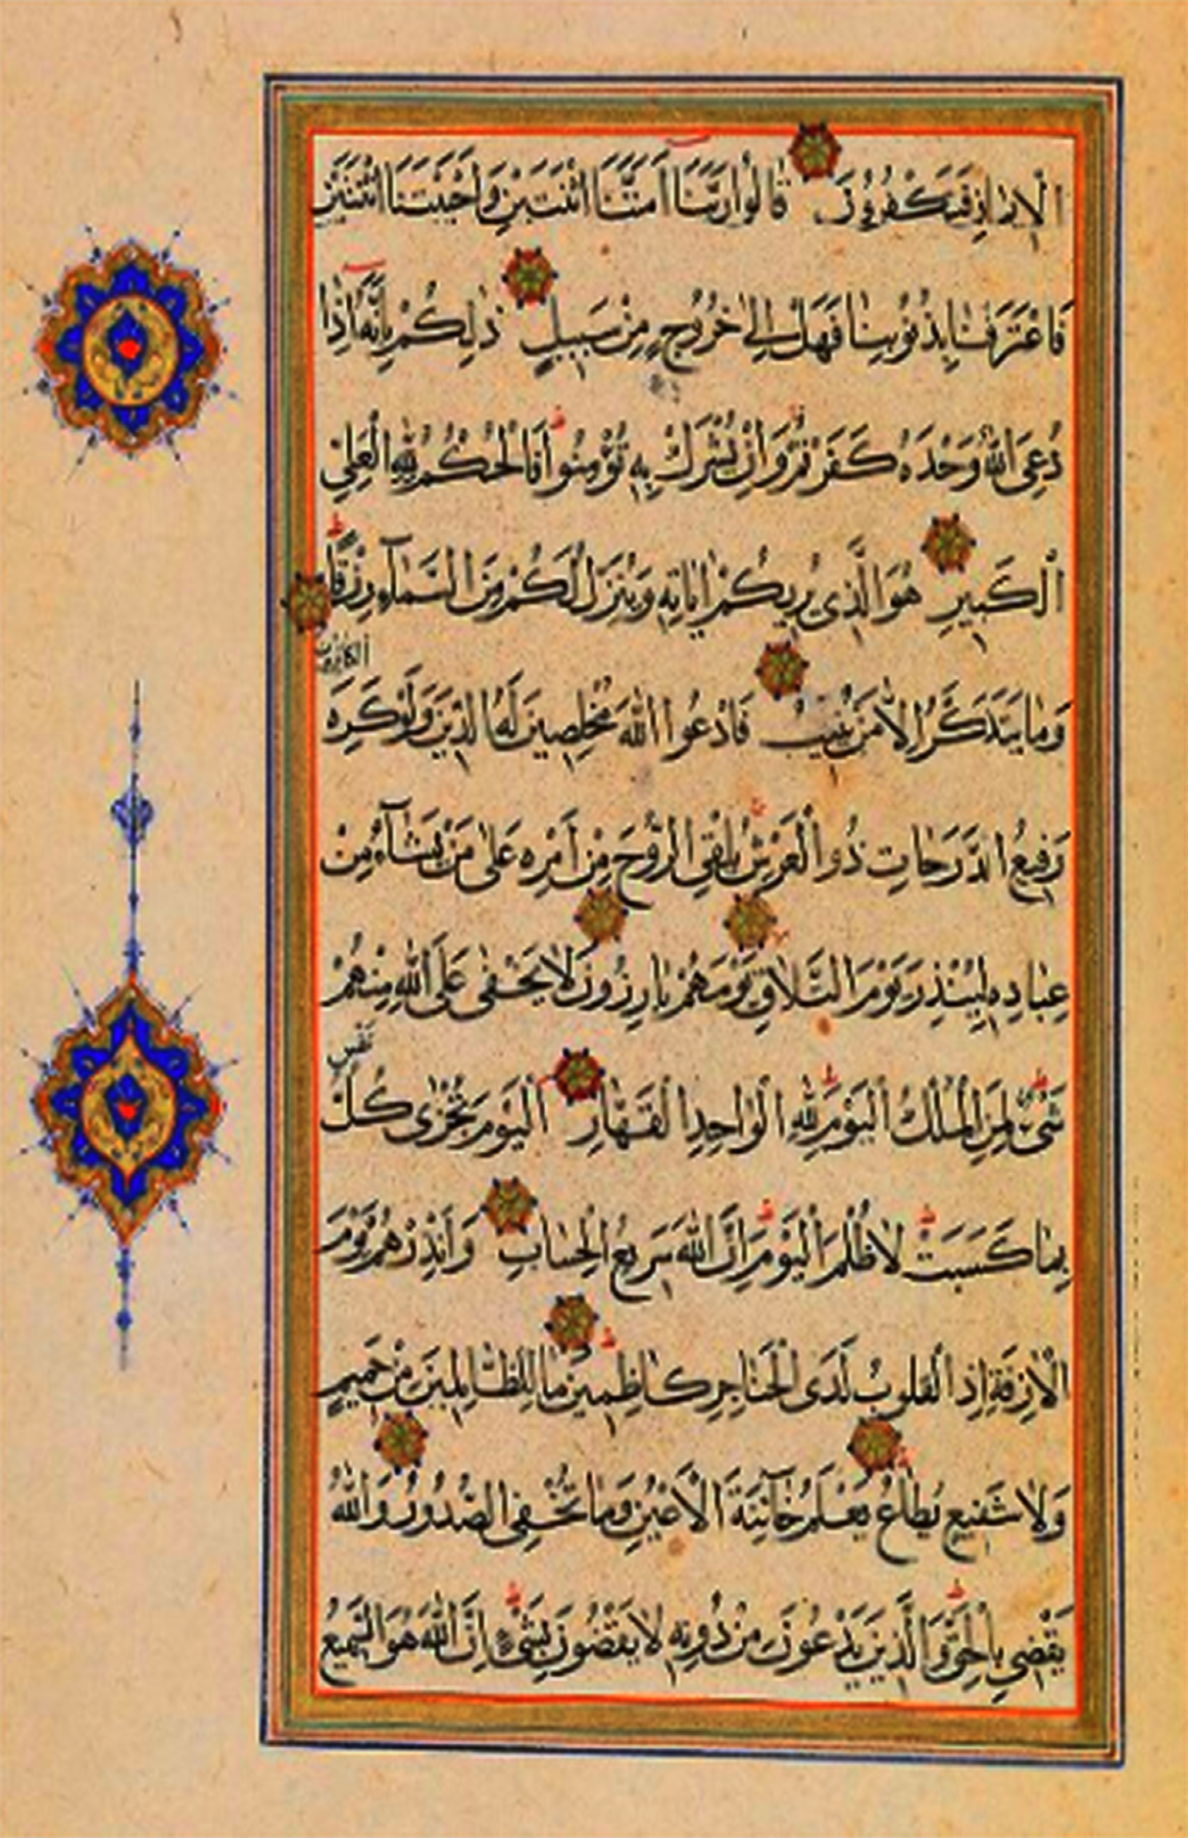 الْاِيمَانِ فَتَكْفُرُونَ قَالُوا رَبَّنَا اَمَتَّنَا اثْنَتَيْنِ وَاَحْيَيْتَنَا اثْنَتَيْنِ
فَاعْتَرَفْنَا بِذُنُوبِنَا فَهَلْ اِلٰى خُرُوجٍ مِنْ سَبِيلٍ ذٰلِكُمْ بِاَنَّهُ اِذَا
دُعِىَ اللّٰهُ وَحْدَهُ كَفَرْتُمْ وَاِنْ يُشْرَكْ بِهِ تُؤْمِنُوا فَالْحُكْمُ لِلّٰهِ الْعَلِىِّ
الْكَبِيرِ هُوَ الَّذِى يُرِيكُمْ اٰيَاتِهِ وَيُنَزِّلُ لَكُمْ مِنَ السَّمَآءِ رِزْقًا
وَمَا يَتَذَكَّرُ اِلَّا مَنْ يُنِيبُ فَادْعُوا اللّٰهَ مُخْلِصِينَ لَهُ الدِّينَ وَلَوْ كَرِهَ
الْكَافِرُونَ
رَفِيعُ الدَّرَجَاتِ ذُو الْعَرْشِ يُلْقِى الرُّوحَ مِنْ اَمْرِهِ عَلٰى مَنْ يَشَآءُ مِنْ
عِبَادِهِ لِيُنْذِرَ يَوْمَ التَّلَاقِ يَوْمَ هُمْ بَارِزُونَ لَا يَخْفٰى عَلَى اللّٰهِ مِنْهُمْ
شَىْءٌ لِمَنِ الْمُلْكُ الْيَوْمَ لِلّٰهِ الْوَاحِدِ الْقَهَّارِ اَلْيَوْمَ تُجْزٰى كُلُّ
نَفْسٍ
بِمَا كَسَبَتْ لَا ظُلْمَ الْيَوْمَ اِنَّ اللّٰهَ سَرِيعُ الْحِسَابِ وَاَنْذِرْهُمْ يَوْمَ
الْاٰزِفَةِ اِذِ الْقُلُوبُ لَدَى الْحَنَاجِرِ كَاظِمِينَ مَا لِلظَّالِمِينَ مِنْ حَمِيمٍ
وَلَا شَفِيعٍ يُطَاعُ يَعْلَمُ خَآئِنَةَ الْاَعْيُنِ وَمَا تُخْفِى الصُّدُورُ وَاللّٰهُ
يَقْضِى بِالْحَقِّ وَالَّذِينَ يَدْعُونَ مِنْ دُونِهِ لَا يَقْضُونَ بِشَىْءٍ اِنَّ اللّٰهَ هُوَ السَّمِيعُ